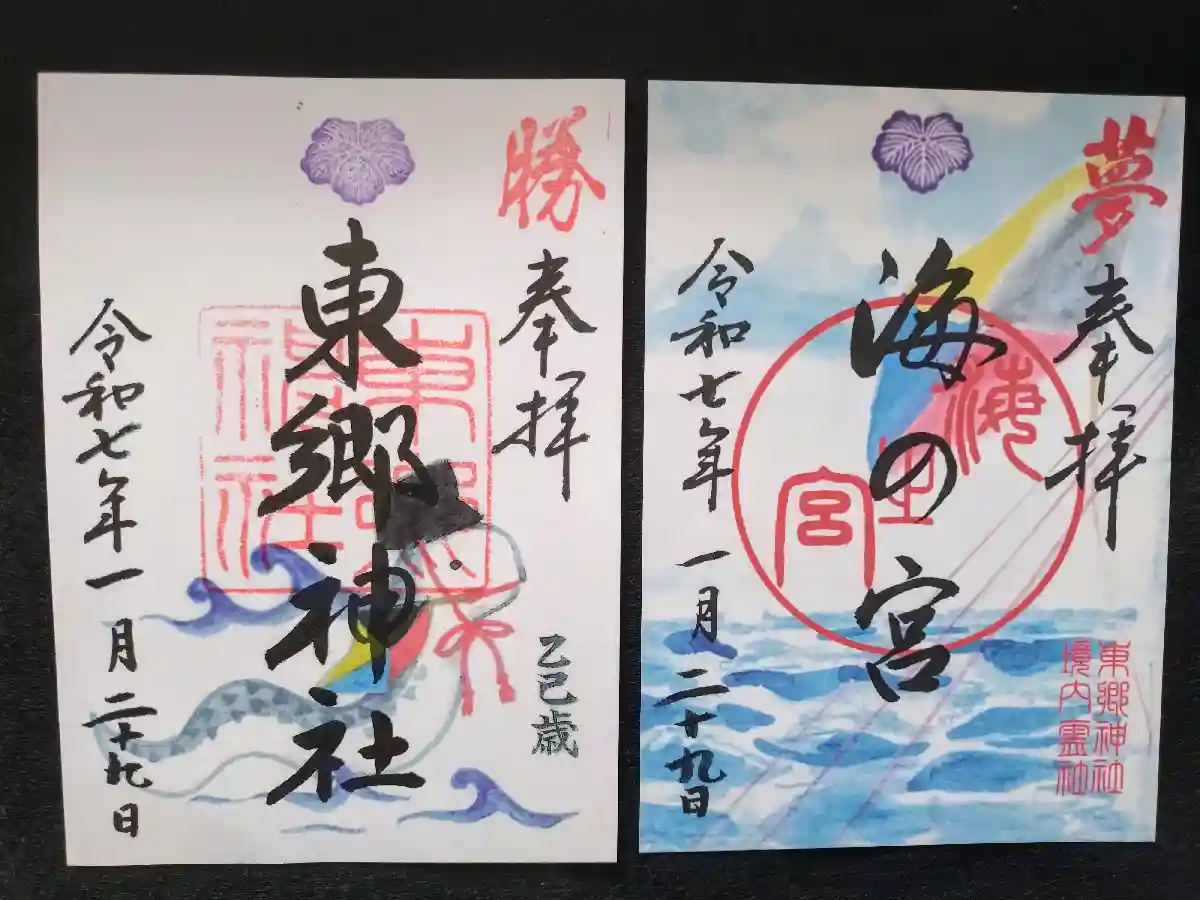 勝
奉拝
東郷神社
東郷神社
乙巳歳
令和七年一月二十九日
夢
奉拝
海の宮
海之宮
東郷神社
境内霊社
令和七年一月二十九日